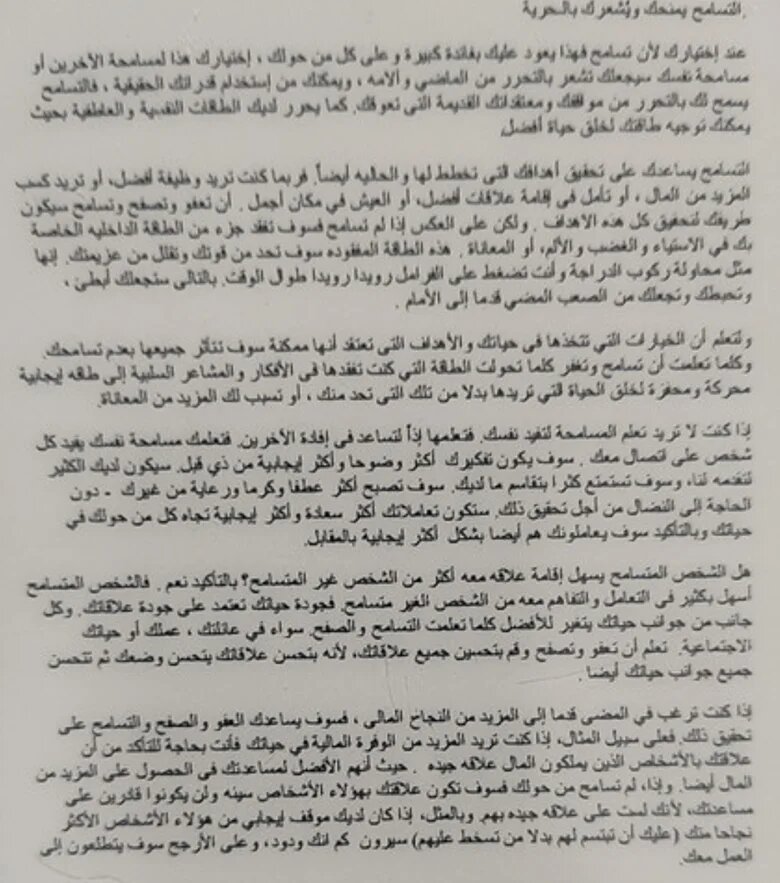 .التسامح يمنحك ويُشعرك بالحرية
عند إختيارك لأن تسامح فهذا يعود عليك بفائدة كبيرة وعلى كل من حولك ، إختيارك هذا لمسامحة الآخرين أو
مسامحة نفسك سيجعلك تشعر بالتحرر من الماضي وألامه ، ويمكنك من إستخدام قدراتك الحقيقية ، فالتسامح
يسمح لك بالتحرر من مواقفك ومعتقداتك القديمة التى تعوقك. كما يحرر لديك الطاقات النفسية والعاطفية بحيث
يمكنك توجيه طاقتك لخلق حياة أفضل.
التسامح يساعدك على تحقيق أهدافك التى تخطط لها والحاليه أيضاً. فربما كنت تريد وظيفة أفضل، أو تريد كسب
المزيد من المال ، أو تأمل فى إقامة علاقات أفضل، أو العيش في مكان أجمل . أن تعفو وتصفح وتسامح سيكون
طريقك لتحقيق كل هذه الاهداف . ولكن على العكس إذا لم تسامح فسوف تفقد جزء من الطاقة الداخليه الخاصة
بك في الاستياء والغضب والألم، أو المعاناة . هذه الطاقة المفقوده سوف تحد من قوتك وتقلل من عزيمتك. إنها
مثل محاولة ركوب الدراجة وأنت تضغط على الفرامل رويدا رويدا طوال الوقت. بالتالى ستجعلك أبطئ ،
وتحبطك وتجعلك من الصعب المضي قدما إلى الأمام .
ولتعلم أن الخيارات التي تتخذها فى حياتك والأهداف التى تعتقد أنها ممكنة سوف تتأثر جميعها بعدم تسامحك.
وكلما تعلمت أن تسامح وتغفر كلما تحولت الطاقة التي كنت تفقدها فى الأفكار والمشاعر السلبية إلى طاقه إيجابية
محركة ومحفزة لخلق الحياة التي تريدها بدلا من تلك التى تحد منك ، أو تسبب لك المزيد من المعاناة.
إذا كنت لا تريد تعلم المسامحة لتفيد نفسك. فتعلمها إذاً لتساعد فى إفادة الأخرين. فتعلمك مسامحة نفسك يفيد كل
شخص على اتصال معك . سوف يكون تفكيرك أكثر وضوحا وأكثر إيجابية من ذي قبل. سيكون لديك الكثير
لتقدمه لنا، وسوف تستمتع كثرا بتقاسم ما لديك. سوف تصبح أكثر عطفا وكرما ورعاية من غيرك - دون
الحاجة إلى النضال من أجل تحقيق ذلك. ستكون تعاملاتك أكثر سعادة وأكثر إيجابية تجاه كل من حولك في
حياتك وبالتأكيد سوف يعاملونك هم أيضا بشكل أكثر إيجابية بالمقابل.
هل الشخص المتسامح يسهل إقامة علاقه معه أكثر من الشخص غير المتسامح؟ بالتأكيد نعم . فالشخص المتسامح
أسهل بكثير فى التعامل والتفاهم معه من الشخص الغير متسامح. فجودة حياتك تعتمد على جودة علاقاتك. وكل
جانب من جوانب حياتك يتغير للأفضل كلما تعلمت التسامح والصفح. سواء في عائلتك ، عملك أو حياتك
الاجتماعية. تعلم أن تعفو وتصفح وقم بتحسين جميع علاقاتك، لأنه بتحسن علاقاتك يتحسن وضعك ثم تتحسن
جميع جوانب حياتك أيضا .
إذا كنت ترغب في المضى قدما إلى المزيد من النجاح المالى ، فسوف يساعدك العفو والصفح والتسامح على
تحقيق ذلك. فعلى سبيل المثال، إذا كنت تريد المزيد من الوفرة المالية في حياتك فأنت بحاجة للتأكد من أن
علاقتك بالأشخاص الذين يملكون المال علاقه جيده . حيث أنهم الأفضل لمساعدتك فى الحصول على المزيد من
المال أيضا. وإذا، لم تسامح من حولك فسوف تكون علاقتك بهؤلاء الأشخاص سيئه ولن يكونوا قادرين على
مساعدتك، لأنك لست على علاقه جيده بهم. وبالمثل، إذا كان لديك موقف إيجابي من هؤلاء الأشخاص الأكثر
نجاحا منك (عليك أن تبتسم لهم بدلا من تسخط عليهم) سيرون كم انك ودود، وعلى الأرجح سوف يتطلعون إلى
العمل معك.